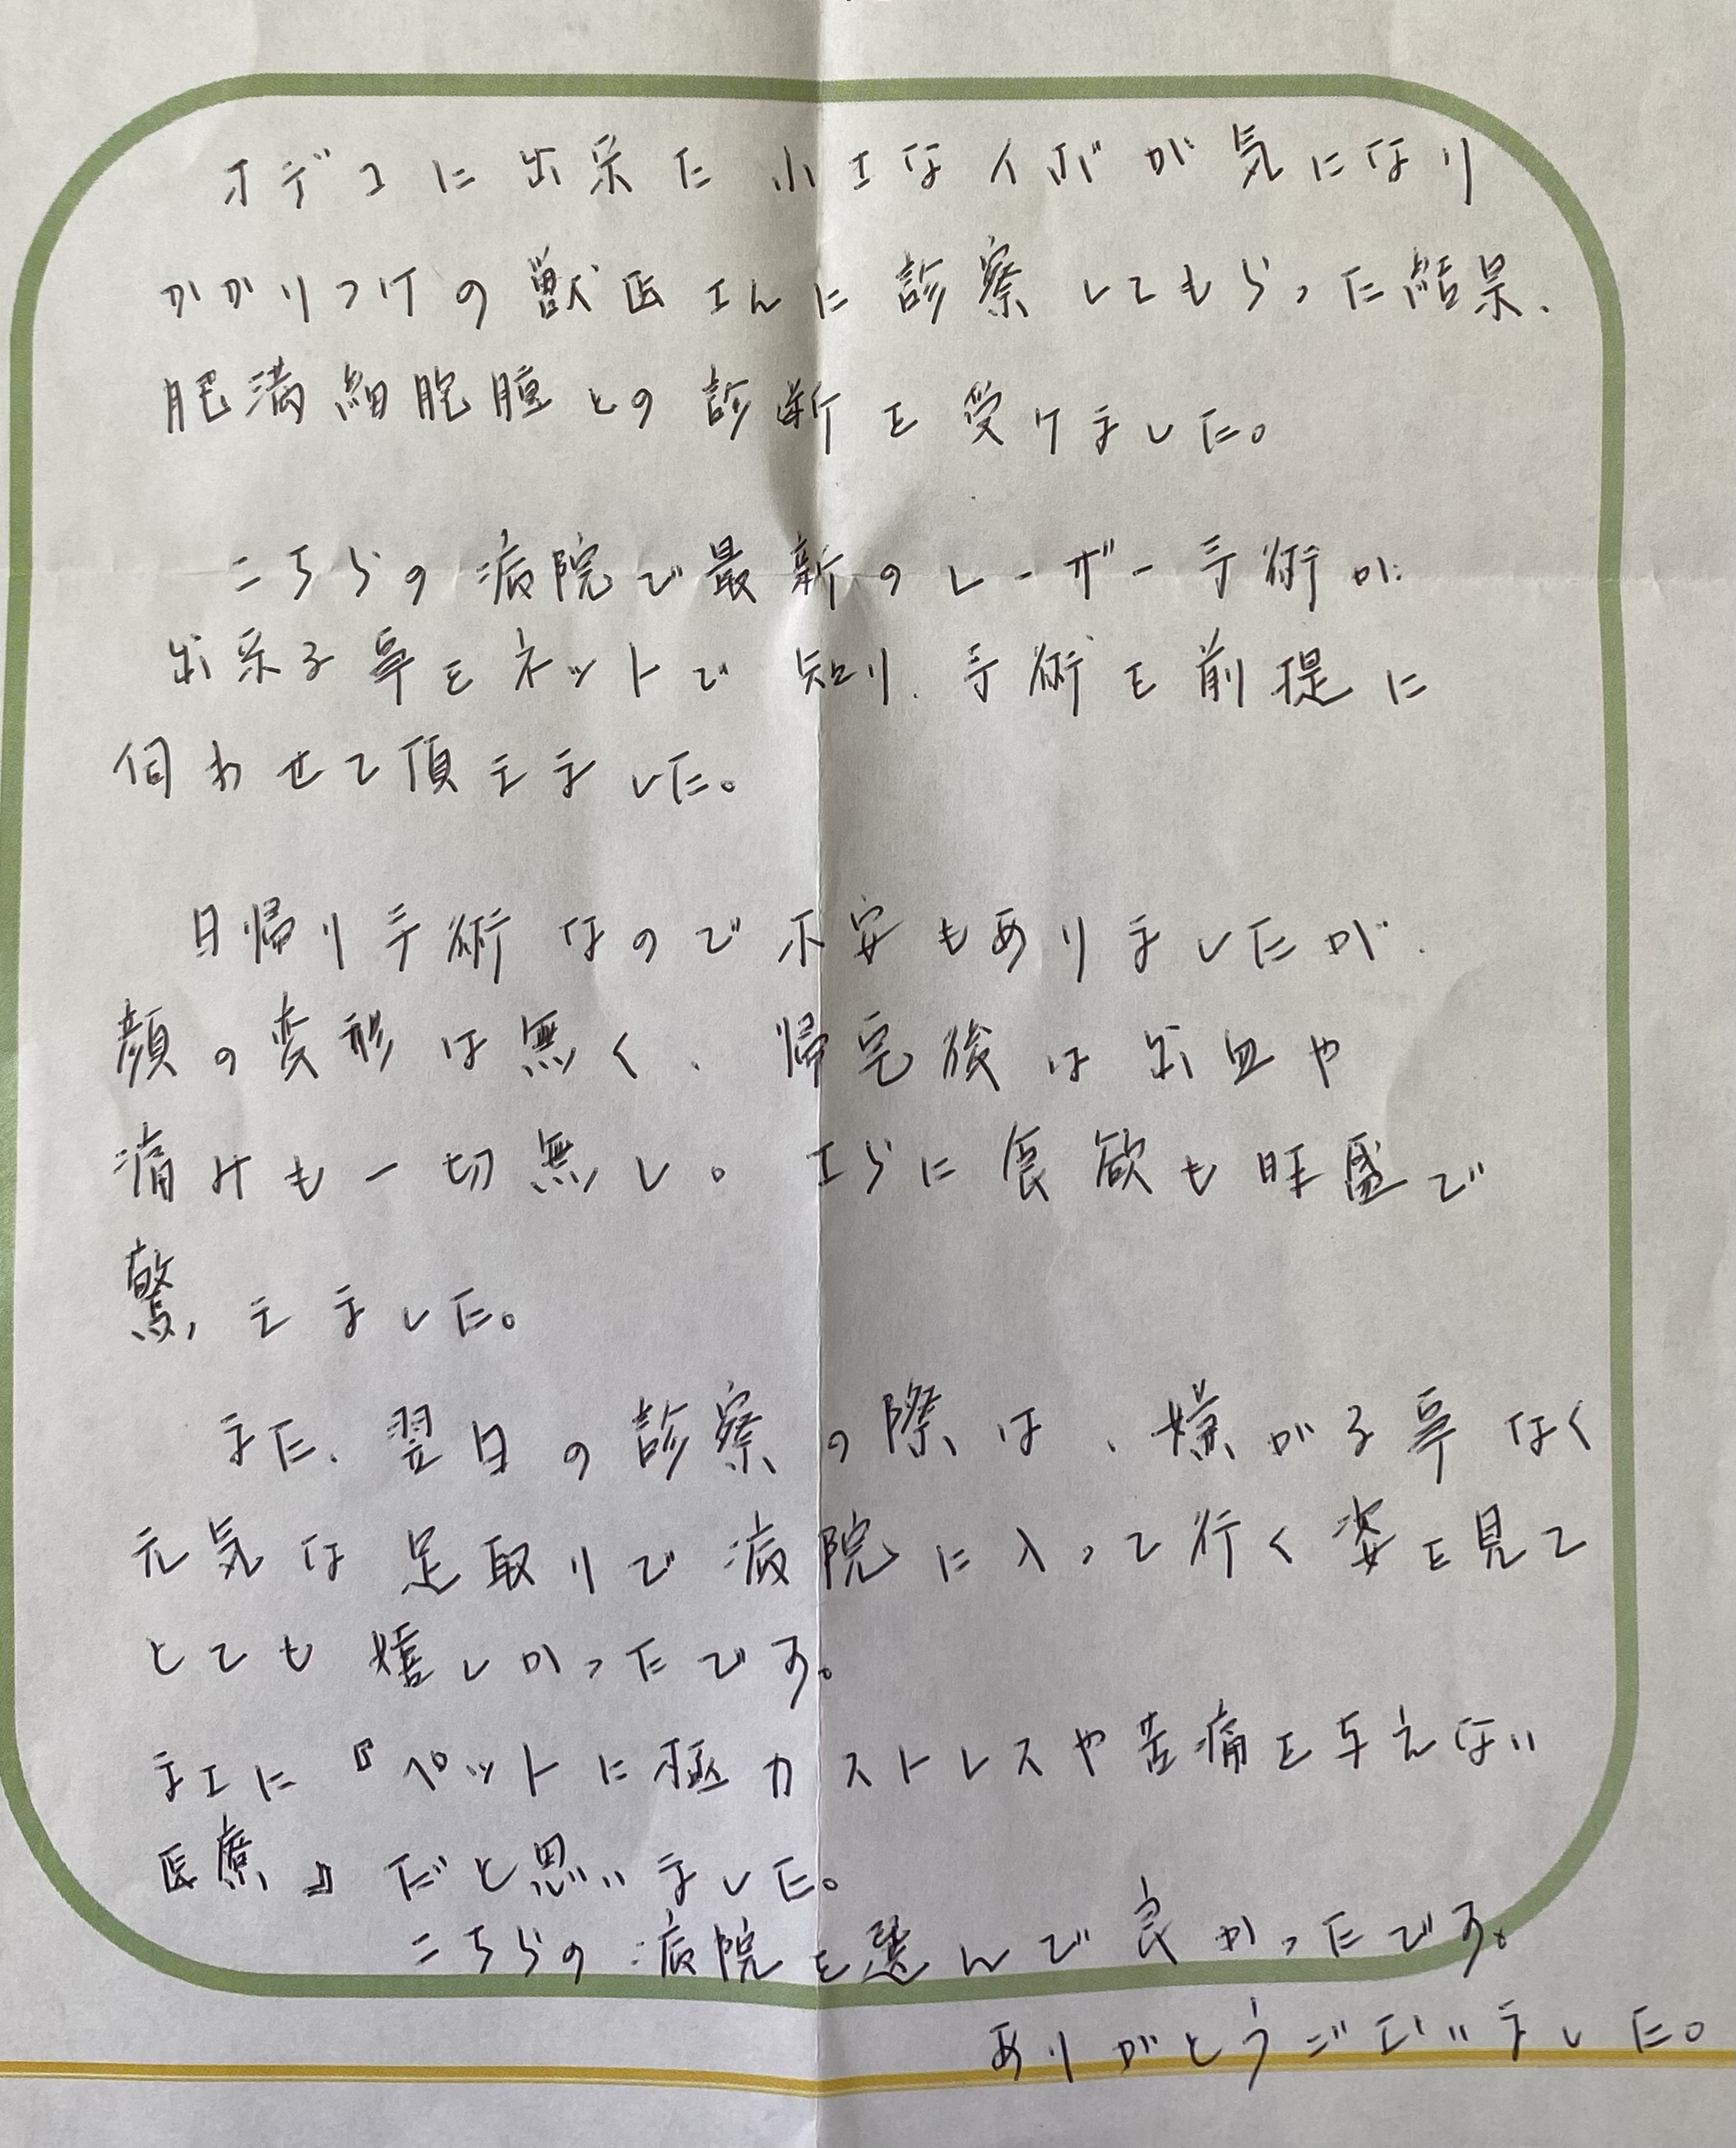 オデコに出来た小さなイボが気になり
かかりつけの獣医さんに診察してもらった結果、
肥満細胞腫との診断を受けました。
こちらの病院で最新のレーザー手術が
出来る事をネットで知り、手術を前提に
伺わせて頂きました。
日帰り手術なので不安もありましたが、
顔の変形は無く、帰宅後は出血や
痛みも一切無し。さらに食欲も旺盛で
驚きました。
また、翌日の診察の際は、嫌がる事なく
元気な足取りで病院に入って行く姿を見て
とても嬉しかったです。
まさに『ペットに極力ストレスや苦痛を与えない
医療』だと思いました。
こちらの病院を選んで良かったです。
ありがとうございました。